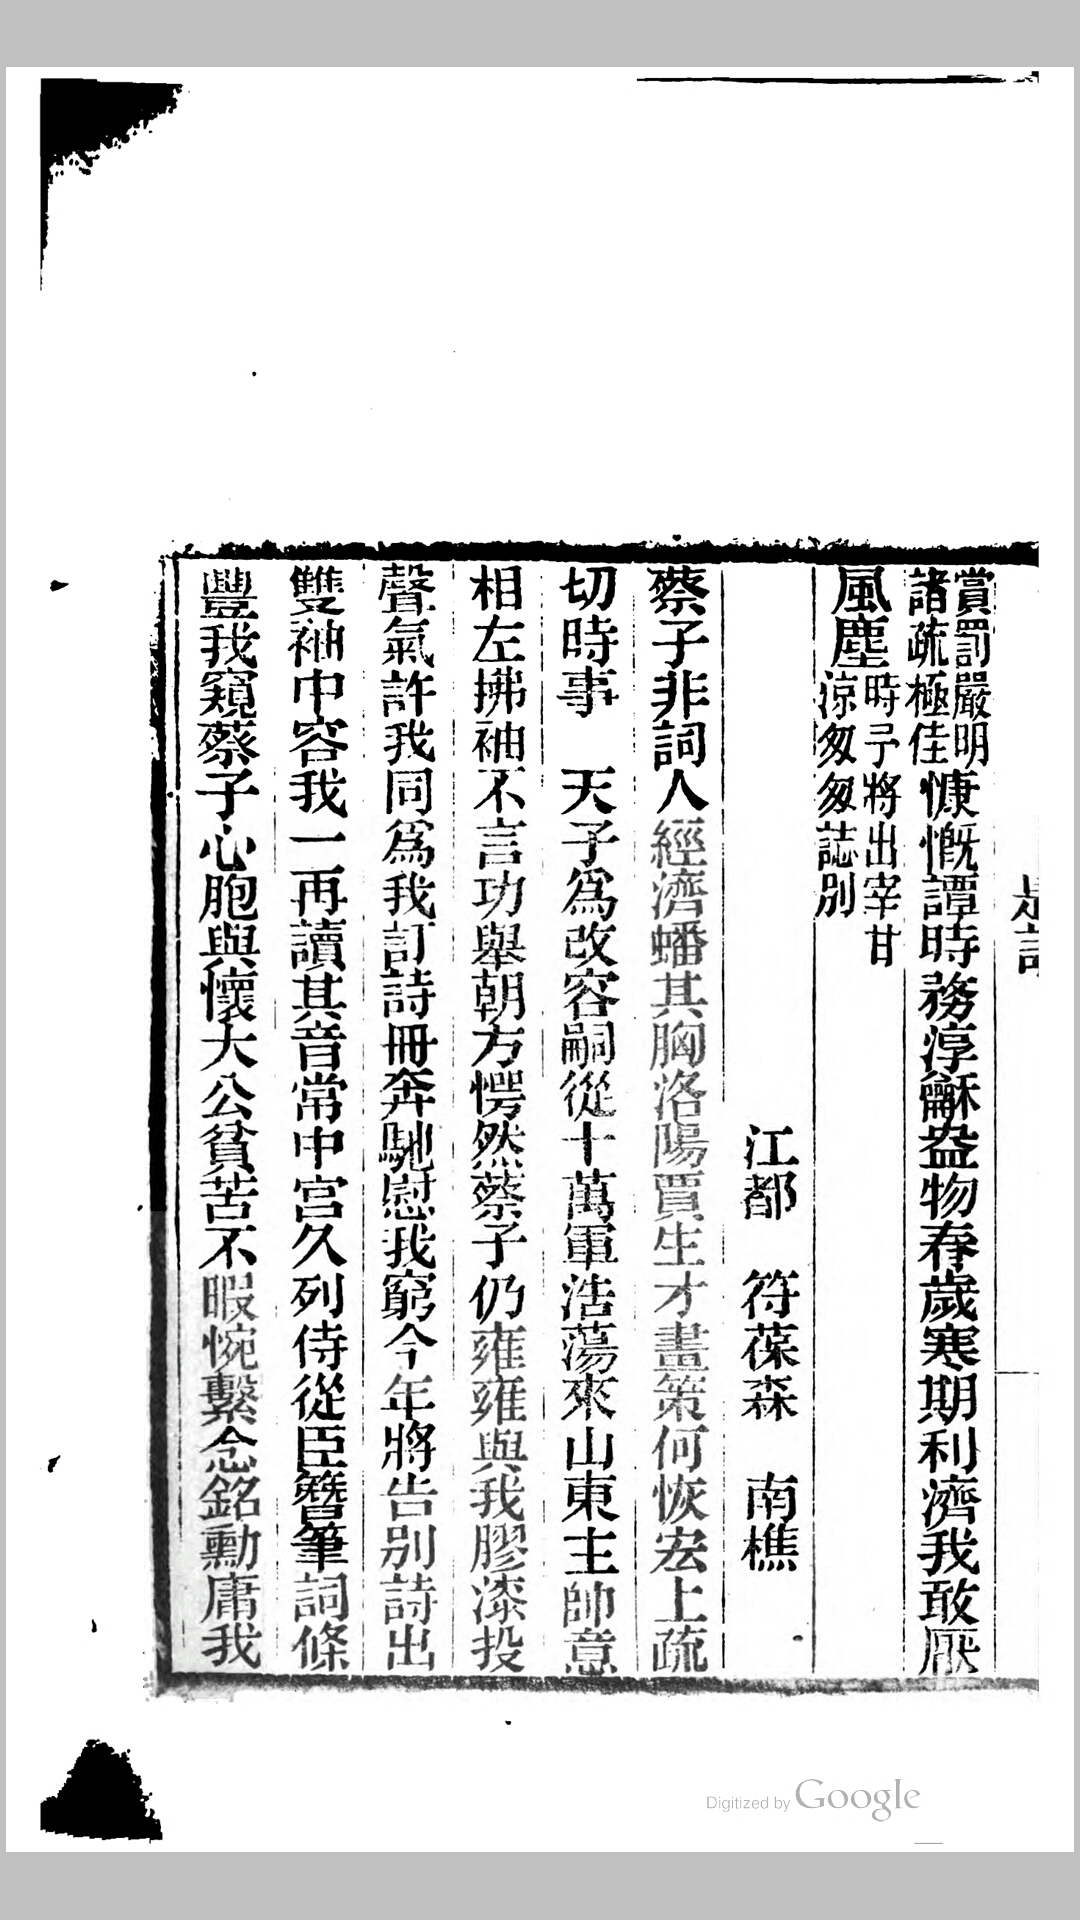 賞罰嚴明
諸疏極佳
慷慨譚時務淳龢盎物春歲寒期利濟我敢厭
風塵
時予將出宰甘
涼匆匆誌別
江都 符葆森 南樵
蔡子非詞人經濟蟠其胸洛陽賈生才畫策何恢宏上疏
切時事 天子爲改容嗣從十萬軍浩蕩來山東主帥意
相左拂袖不言功舉朝方愕然蔡子仍雍雍與我膠漆投
聲氣許我同爲我訂詩冊奔馳慰我窮今年將告別詩出
雙袖中容我一再讀其音常中宮久列侍從臣簪筆詞條
豐我窺蔡子心胞與懷大公貧苦不暇惋繫念銘勳庸我
Digitized by Google